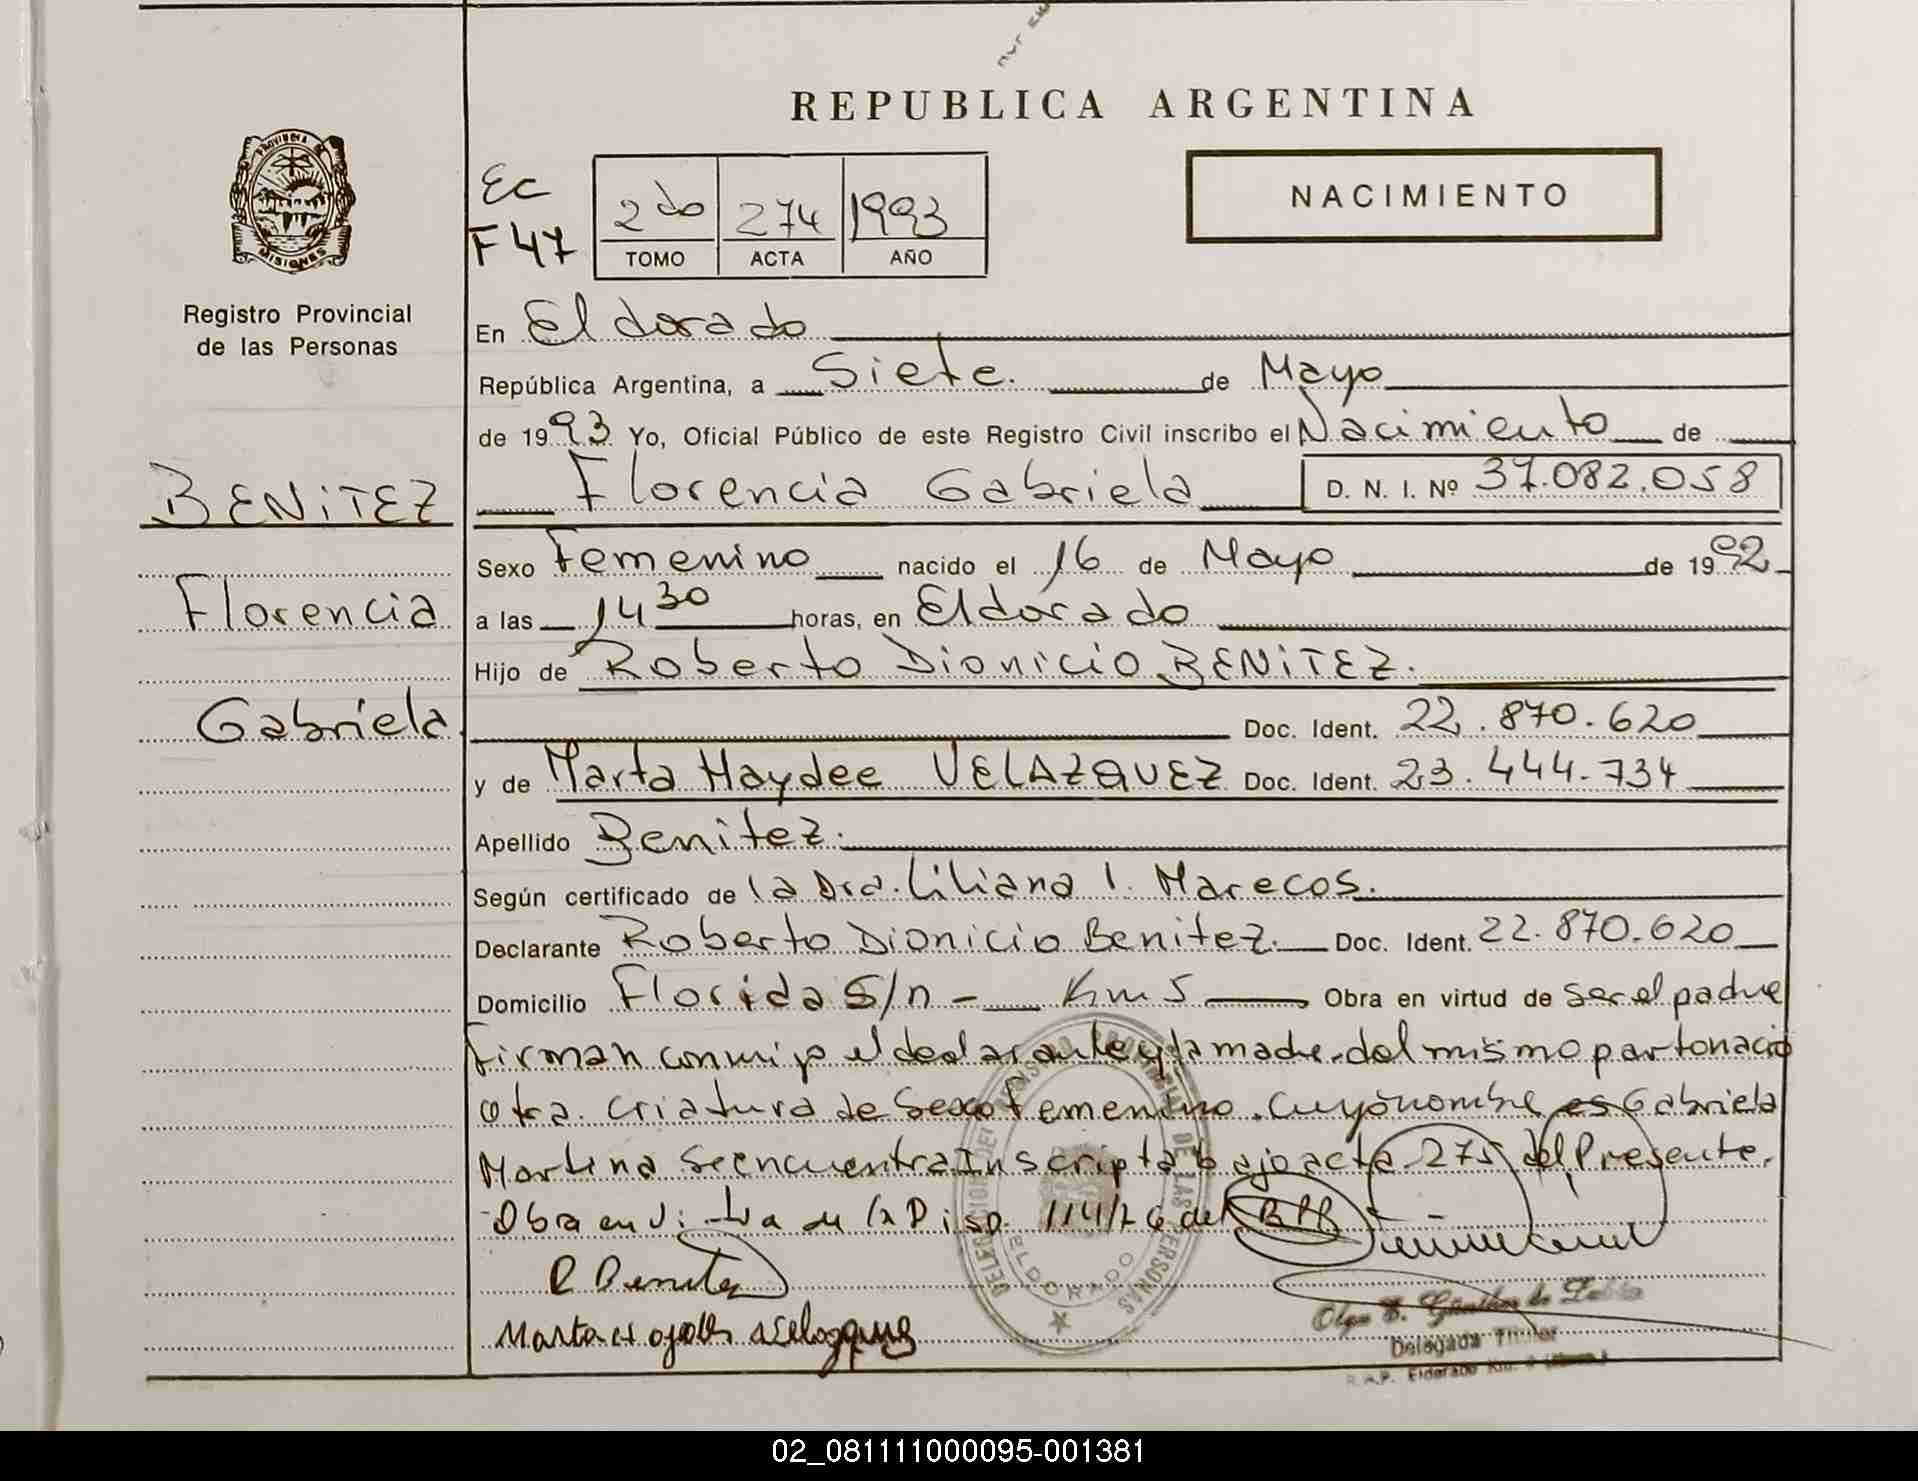 REPUBLICA ARGENTINA
PROVINCIA DE
MISIONES
Registro Provincial
de las Personas
Ec
F 47
2do 274 1993
TOMO ACTA AÑO
NACIMIENTO
En Eldorado
República Argentina, a Siete. de Mayo
de 1993 Yo, Oficial Público de este Registro Civil inscribo el Nacimiento de
Florencia Gabriela D. N. I. Nº 37.082.058
BENITEZ
Florencia
Gabriela
Sexo Femenino nacido el 16 de Mayo de 1992
a las 14 30 horas, en Eldorado
Hijo de Roberto Dionicio BENITEZ.
Doc. Ident. 22.870.620
y de Marta Haydee VELAZQUEZ Doc. Ident. 23.444.734
Apellido Benitez.
Según certificado de la Dra. Liliana I. Marecos.
Declarante Roberto Dionicio Benitez. Doc. Ident. 22.870.620
Domicilio Florida S/n - Km 5 Obra en virtud de ser el padre
Firman conmigo el declarante y la madre. del mismo parto nació
otra. criatura de Sexo Femenino. Cuyo nombre es Gabriela
Martina Se encuentra Inscripta bajo acta 275 del Presente.
Obra en de la Disp. 114/76 del
R Benitez
Marta H
DELEGACION DE LAS PERSONAS
ELDORADO
Olga E. Günther de
Delegada Titular
R.P.P. Eldorado Km.
02_081111000095-001381